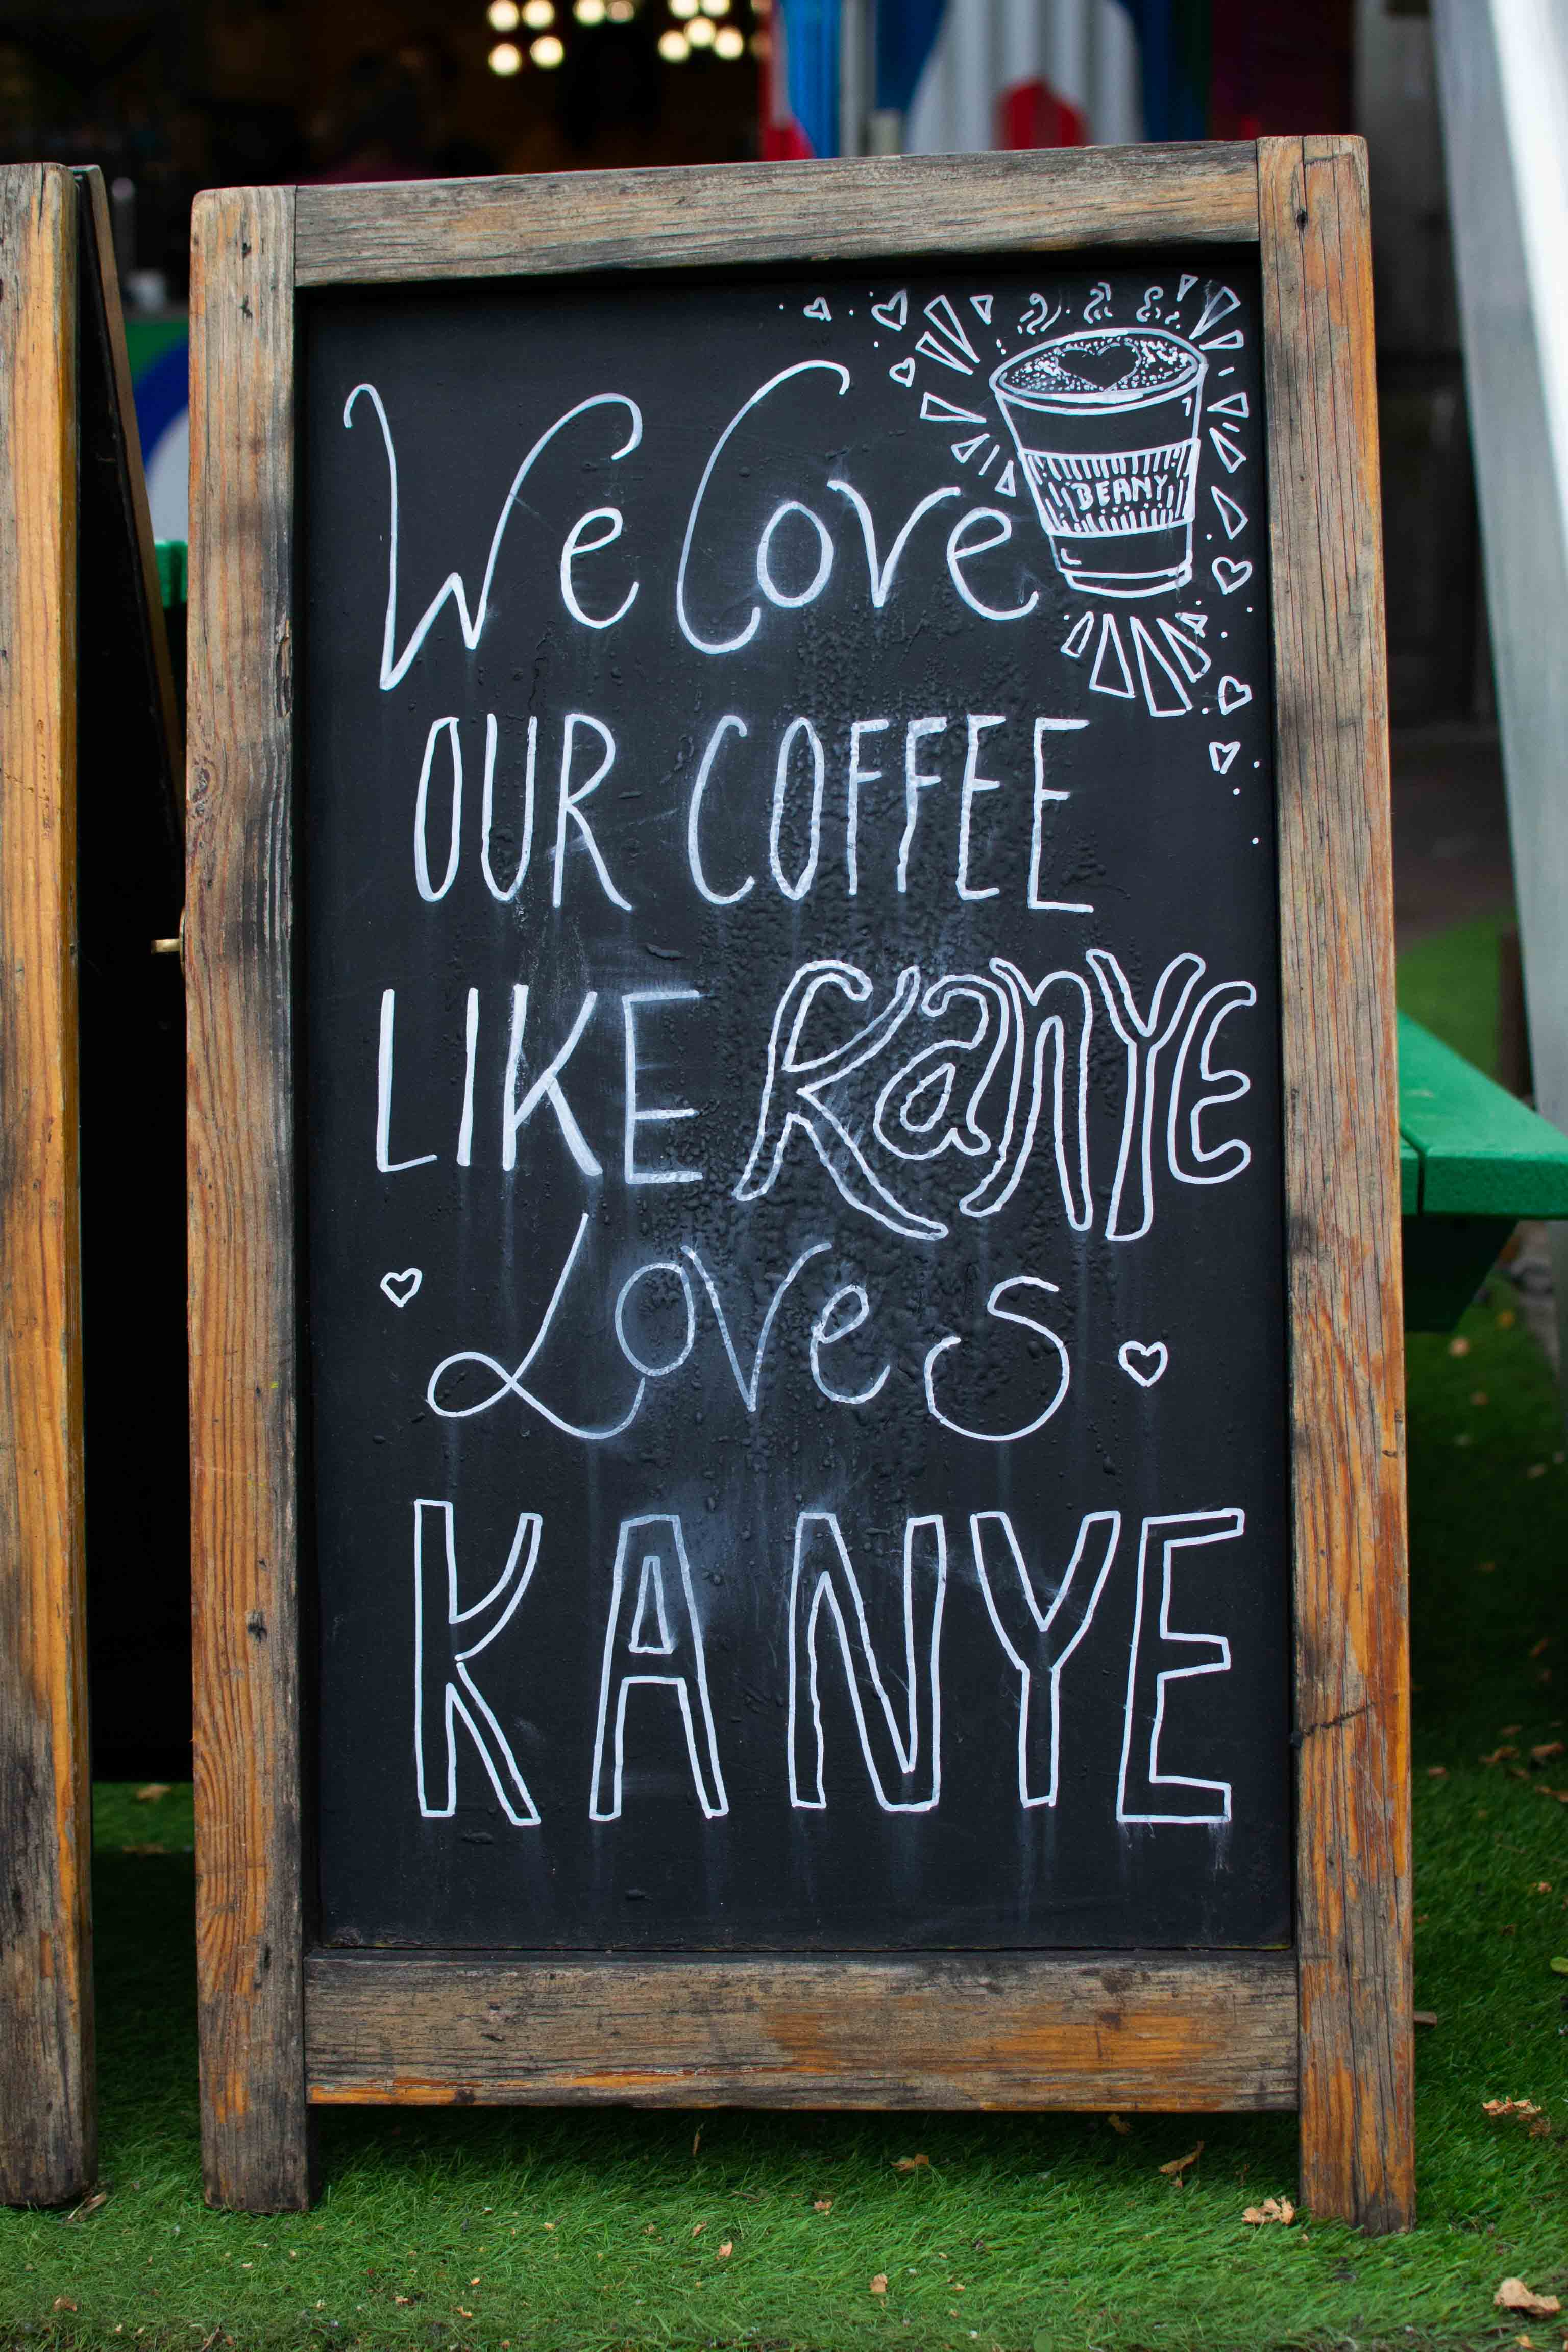 We Love
BEANY
OUR COFFEE
LIKE KANYE
LOVES
KANYE